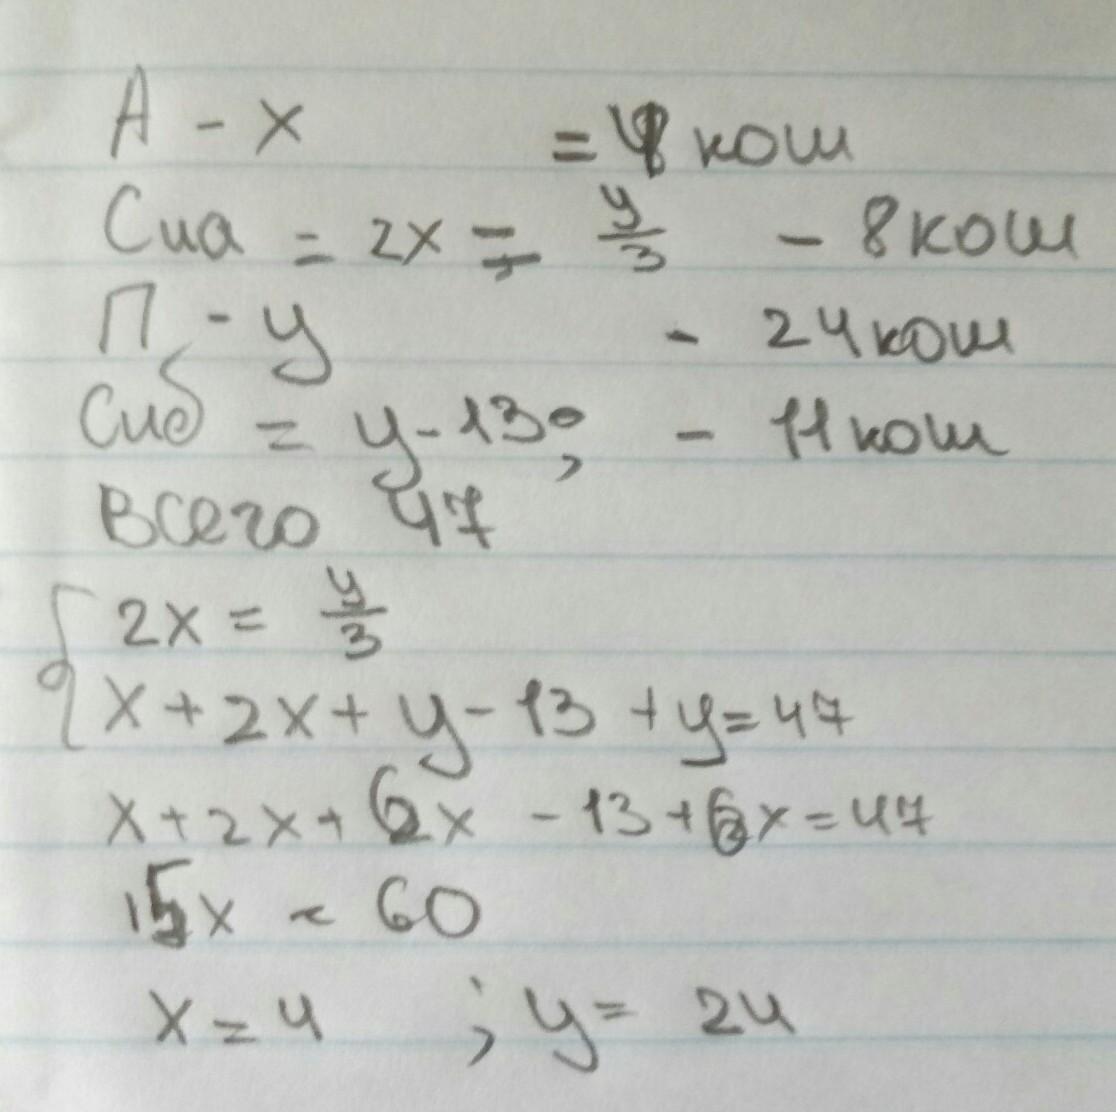 А - х = 4 кош
Сиа = 2х = y/3 - 8 кош
П - y - 24 кош
Сиб = y - 13; - 11 кош
всего 47
{ 2x = y/3
x + 2x + y - 13 + y = 47
x + 2x + 6x - 13 + 6x = 47
15x = 60
x = 4 ; y = 24